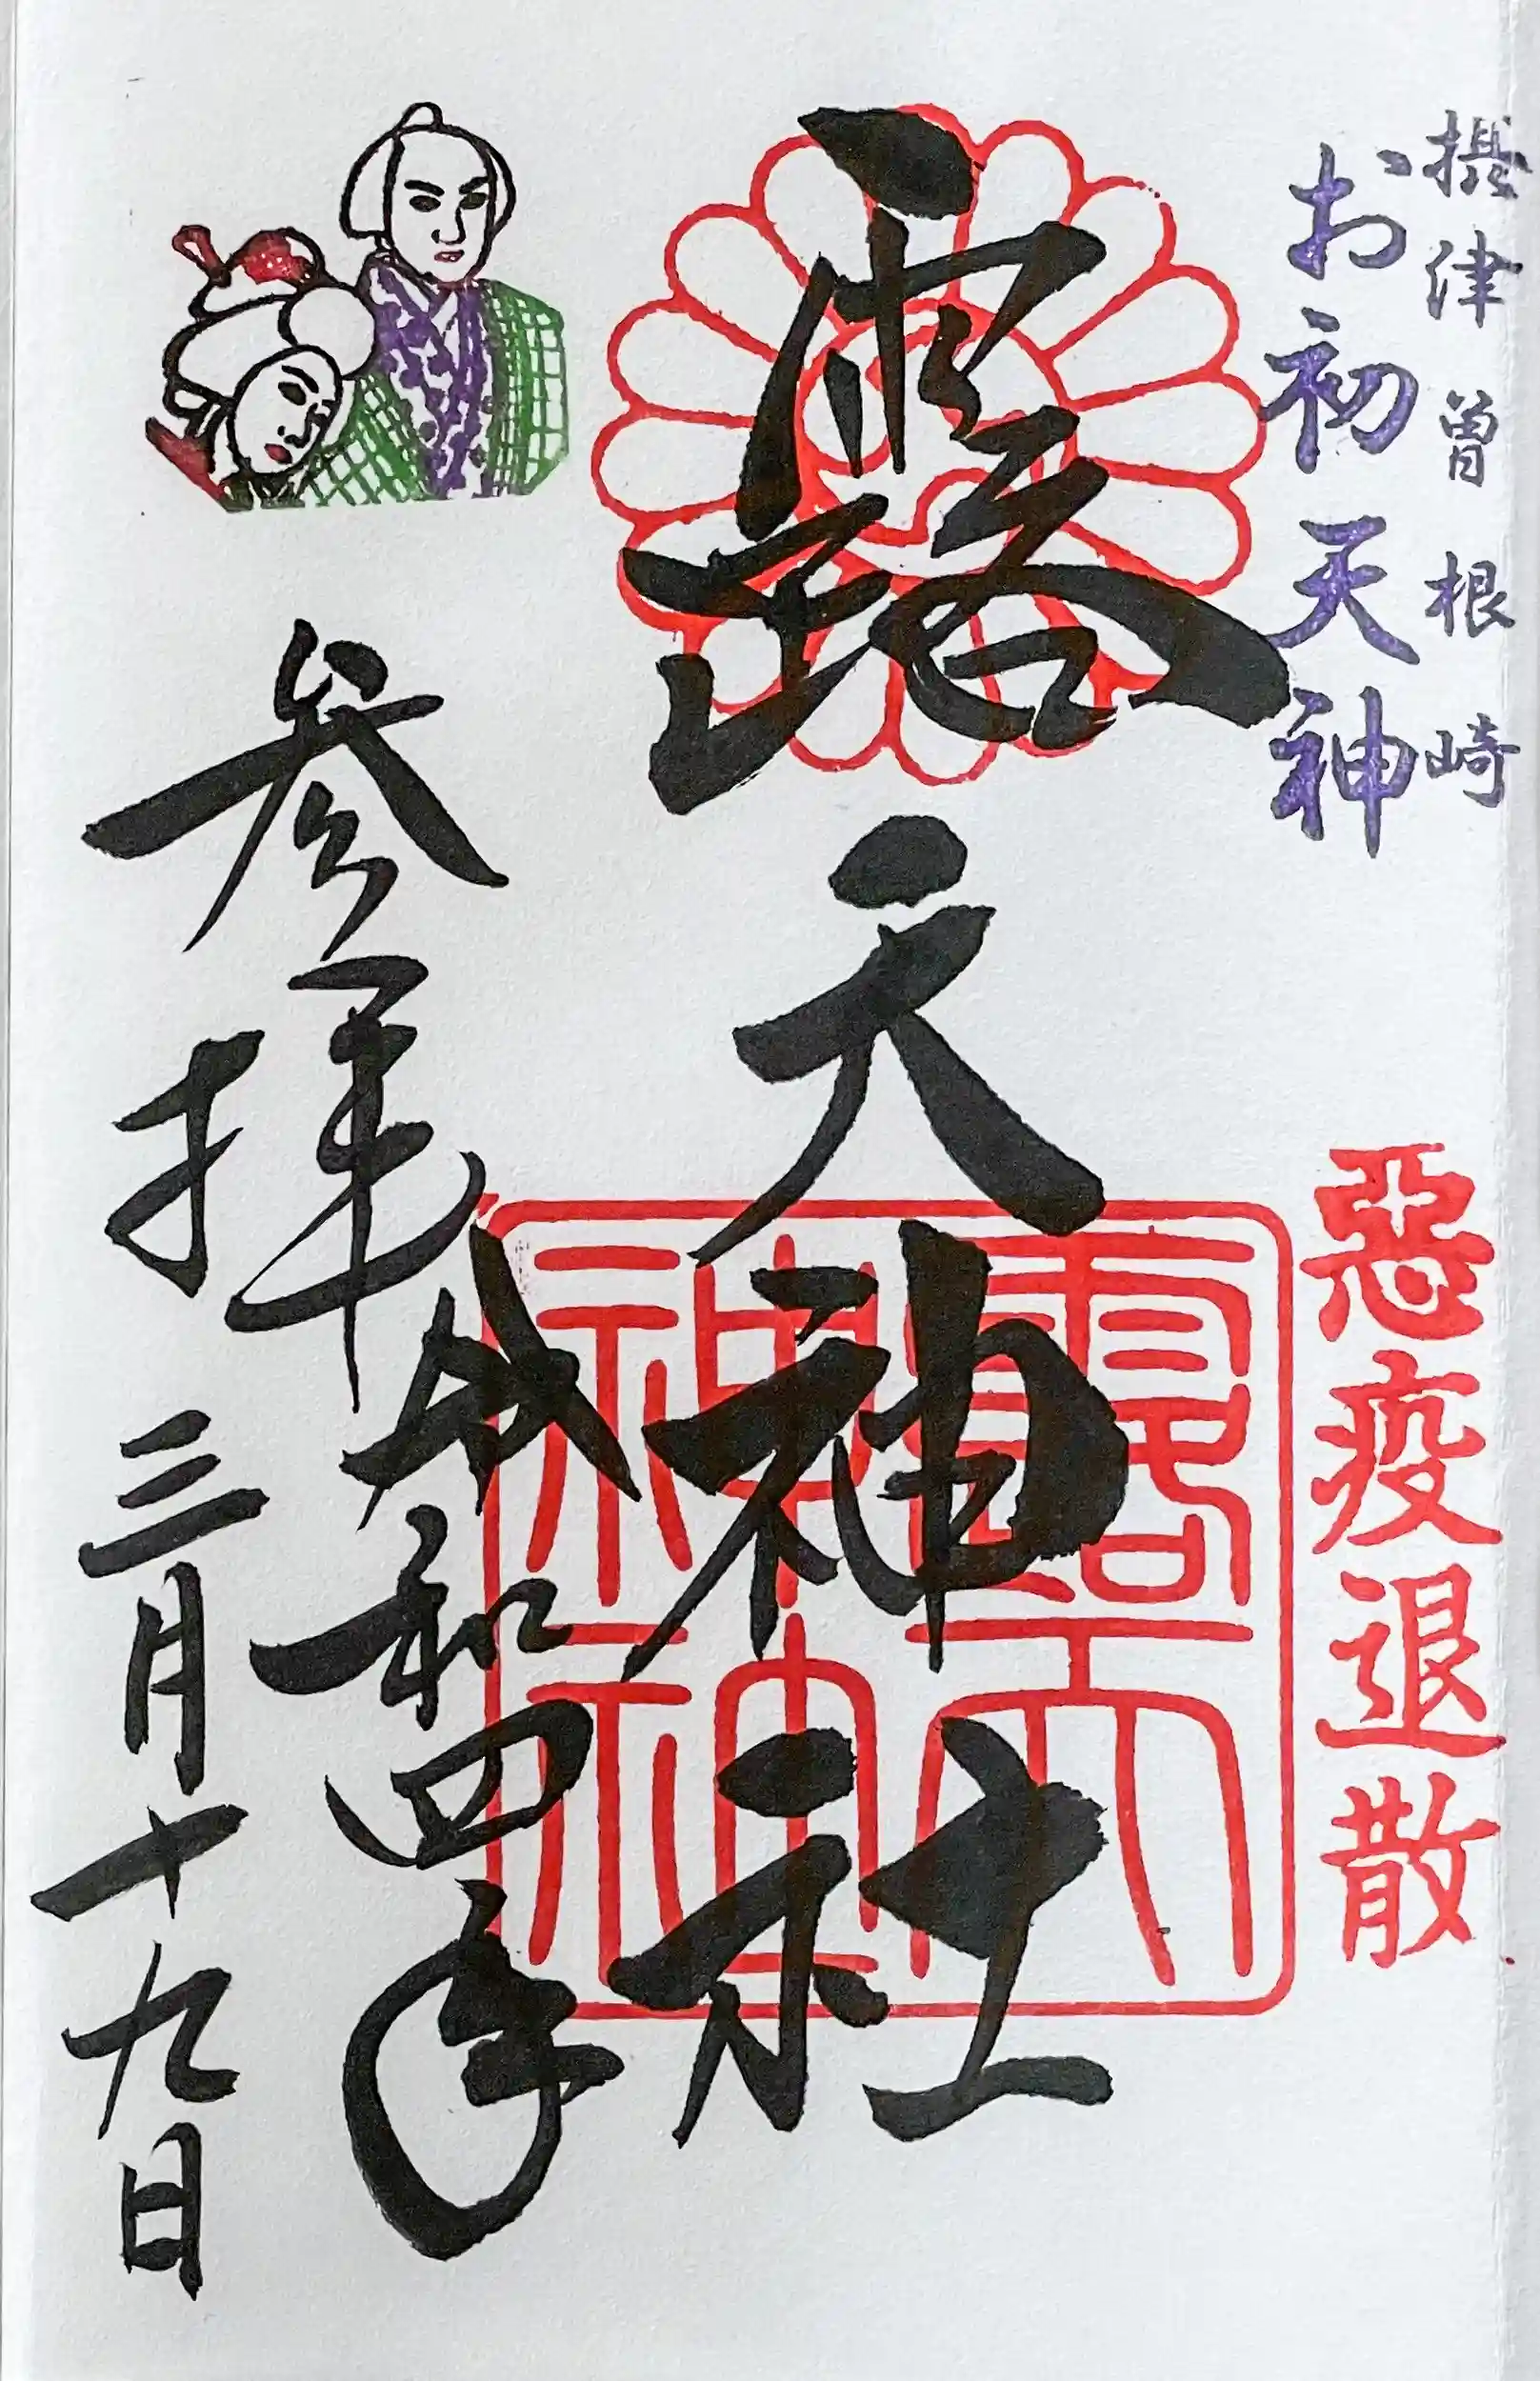 摂津曽根崎
お初天神
惡疫退散
露天神社
露天神社
参拝
令和四年
三月十九日